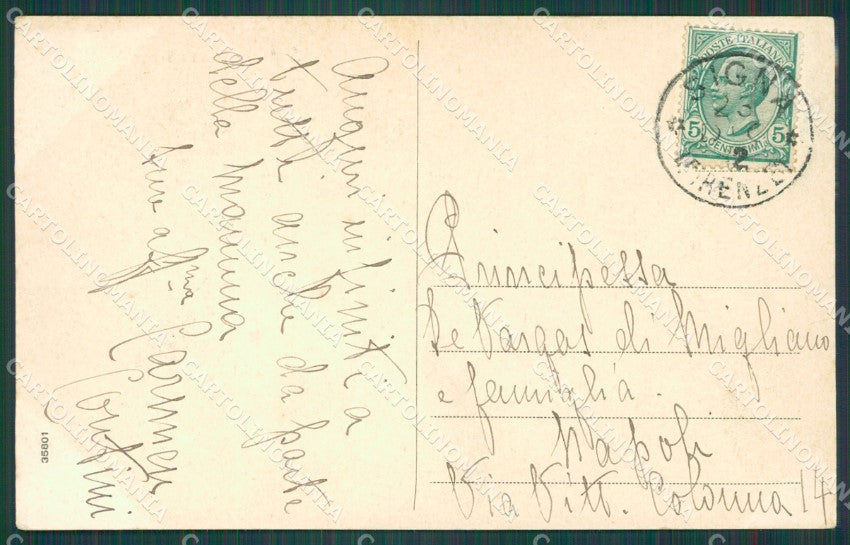 Auguri infiniti a
tutti anche da parte
della mamma
tua aff.ma Carmen
Contini
35801
POSTE ITALIANE
5 5
CENTESIMI
SIGNA
23
2
(FIRENZE)
Principessa
De Vargas di Migliano
e famiglia.
Napoli
Via Vitt. Colonna 14
CARTOLINOMANIA